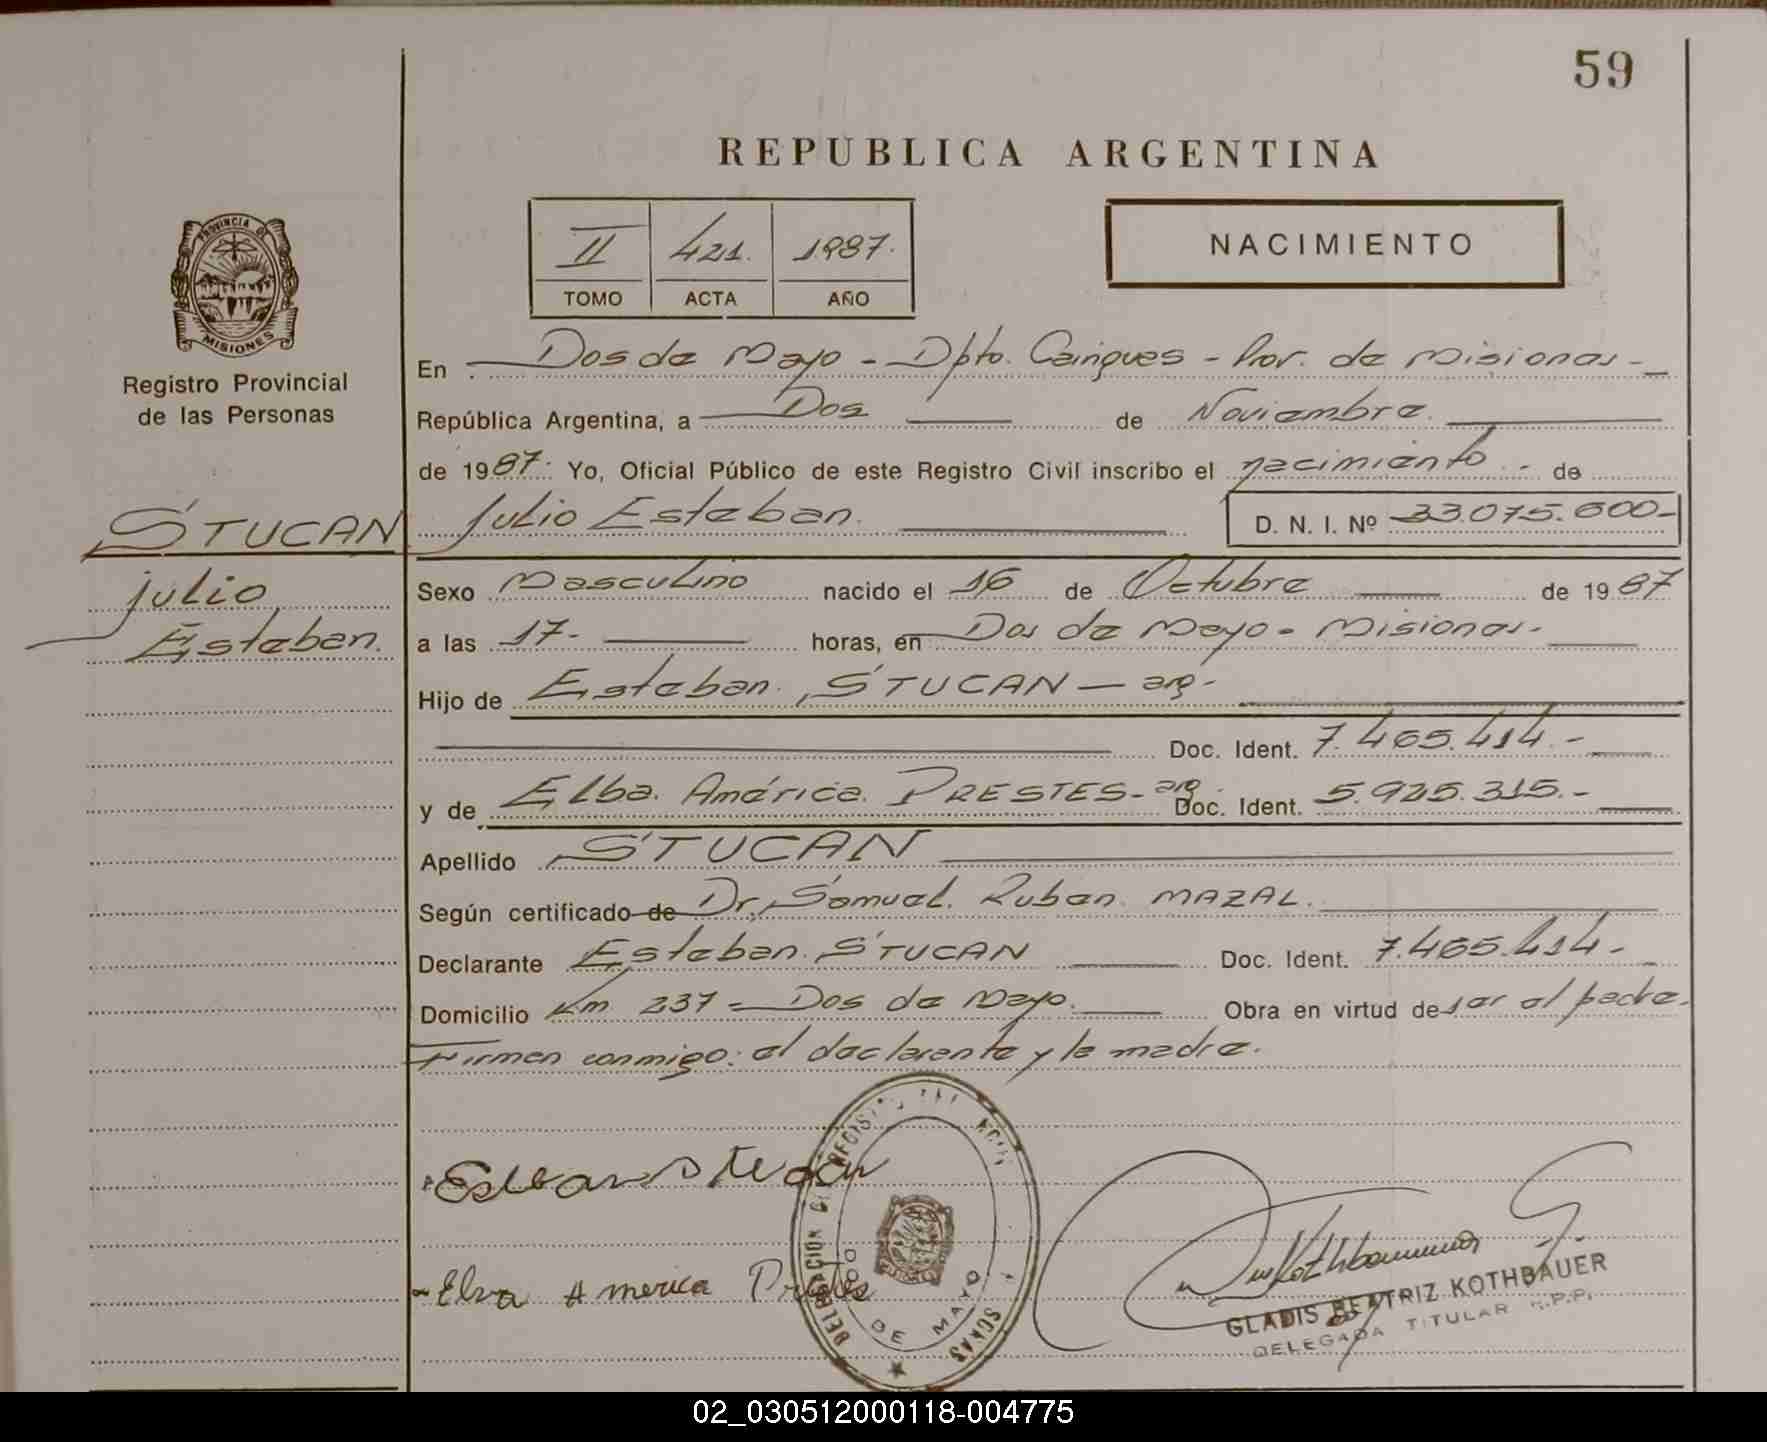 59
REPUBLICA ARGENTINA
PROVINCIA DE
MISIONES
Registro Provincial
de las Personas
II 421. 1987.
TOMO ACTA AÑO
NACIMIENTO
En Dos de Mayo - Dpto. Cainguas - Prov. de Misiones -
República Argentina, a Dos de Noviembre
de 1987. Yo, Oficial Público de este Registro Civil inscribo el nacimiento - de
STUCAN
Julio Esteban. D. N. I. Nº 33.075.600-
Julio
Esteban.
Sexo Masculino nacido el 16 de Octubre de 1987
a las 17- horas, en Dos de Mayo - Misiones.-
Hijo de Esteban. STUCAN - arg-
Doc. Ident. 7.465.414.-
y de Elba. América. PRESTES- arg Doc. Ident. 5.925.315.-
Apellido STUCAN
Según certificado de Dr. Samuel. Ruben. MAZAL.
Declarante Esteban. STUCAN Doc. Ident. 7.465.414-
Domicilio Km 237 - Dos de Mayo. Obra en virtud de ser el padre.
Firman conmigo: el declarante y la madre.
Esteban Stucan
Elva America Prestes
DOS DE MAYO
GLADIS BEATRIZ KOTHBAUER
DELEGADA TITULAR R.P.P.
02_030512000118-004775